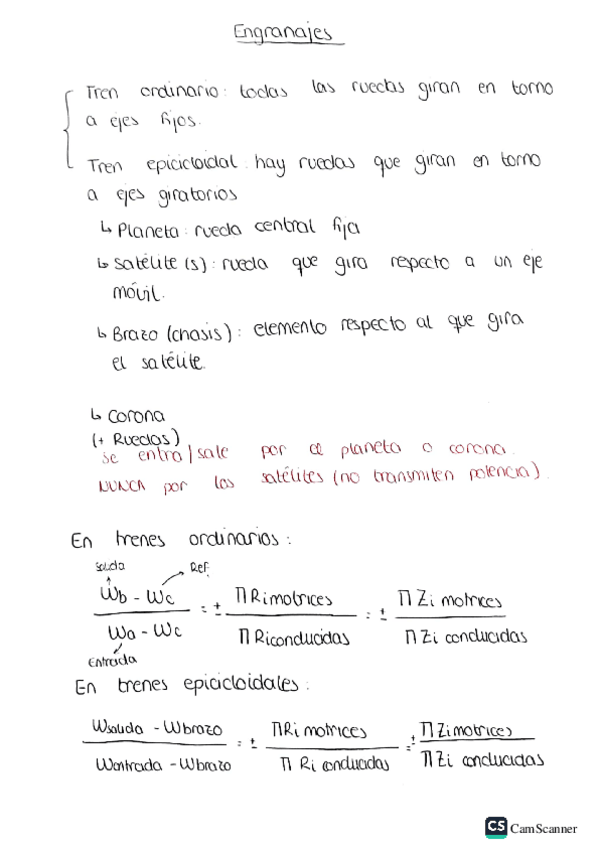 Engranajes
Tren ordinario: todas las ruedas giran en torno
a ejes fijos.
Tren epicicloidal: hay ruedas que giran en torno
a ejes giratorios
↳ Planeta: rueda central fija
↳ satélite(s): rueda que gira respecto a un eje
móvil.
↳ Brazo (chasis): elemento respecto al que gira
el satélite.
↳ corona
(+ Ruedas)
se entra/sale por el planeta o corona.
NUNCA por los satélites (no transmiten potencia).
En trenes ordinarios:
salida Ref.
(Wb - Wc) / (Wa - Wc) = ± ΠRi motrices / ΠRi conducidas = ± ΠZi motrices / ΠZi conducidas
Entrada
En trenes epicicloidales:
(Wsalida - Wbrazo) / (Wentrada - Wbrazo) = ± ΠRi motrices / ΠRi conducidas = ± ΠZi motrices / ΠZi conducidas
CS CamScanner